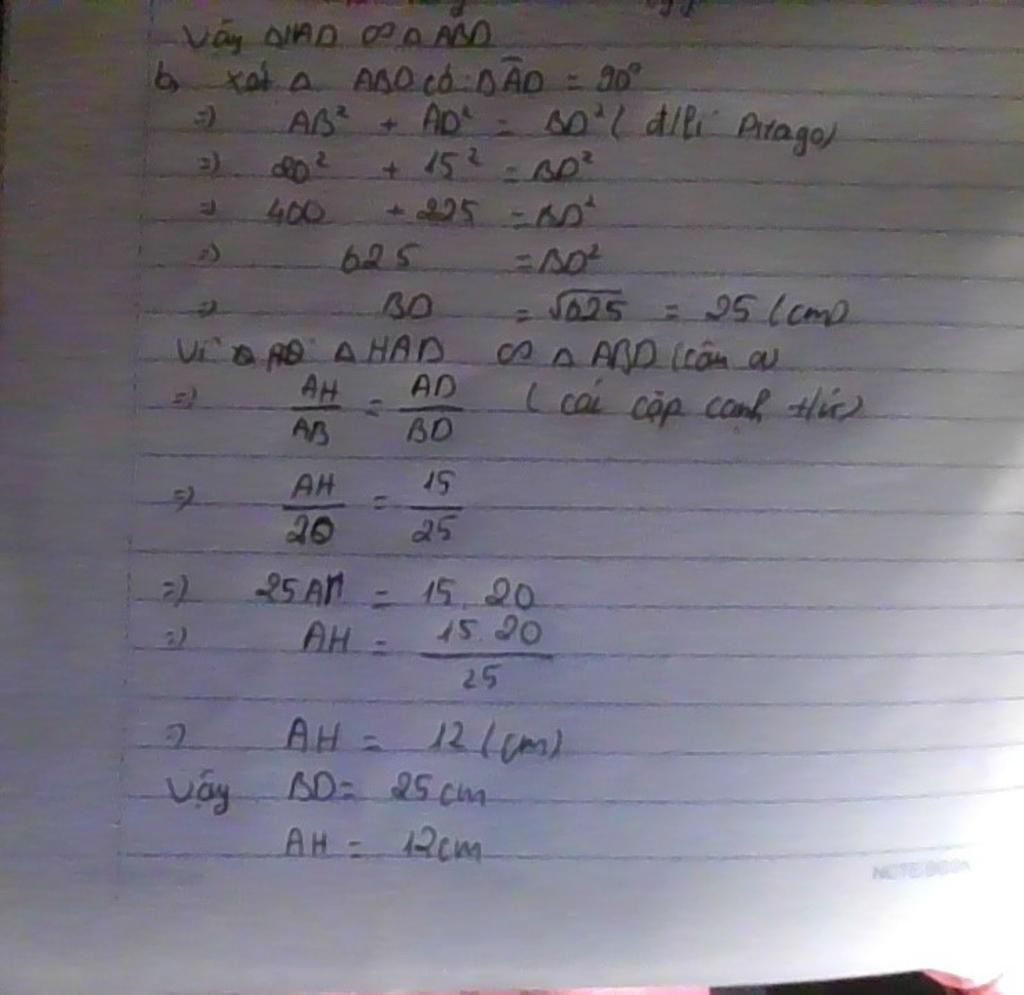 Vậy ΔHAD ∽ Δ ABD
b, xét Δ ABD có: BAD = 90°
=) AB² + AD² = BD² ( đ/lí Pitago)
=) 20² + 15² = BD²
=) 400 + 225 = BD²
=) 625 = BD²
=) BD = √625 = 25 (cm)
Vì Δ HAD ∽ Δ ABD (câu a)
=) AH/AB = AD/BD ( các cặp cạnh t/ứ)
=) AH/20 = 15/25
=) 25AH = 15. 20
=) AH = 15.20/25
=) AH = 12 (cm)
Vậy BD = 25 cm
AH = 12cm
NOTEBOOK